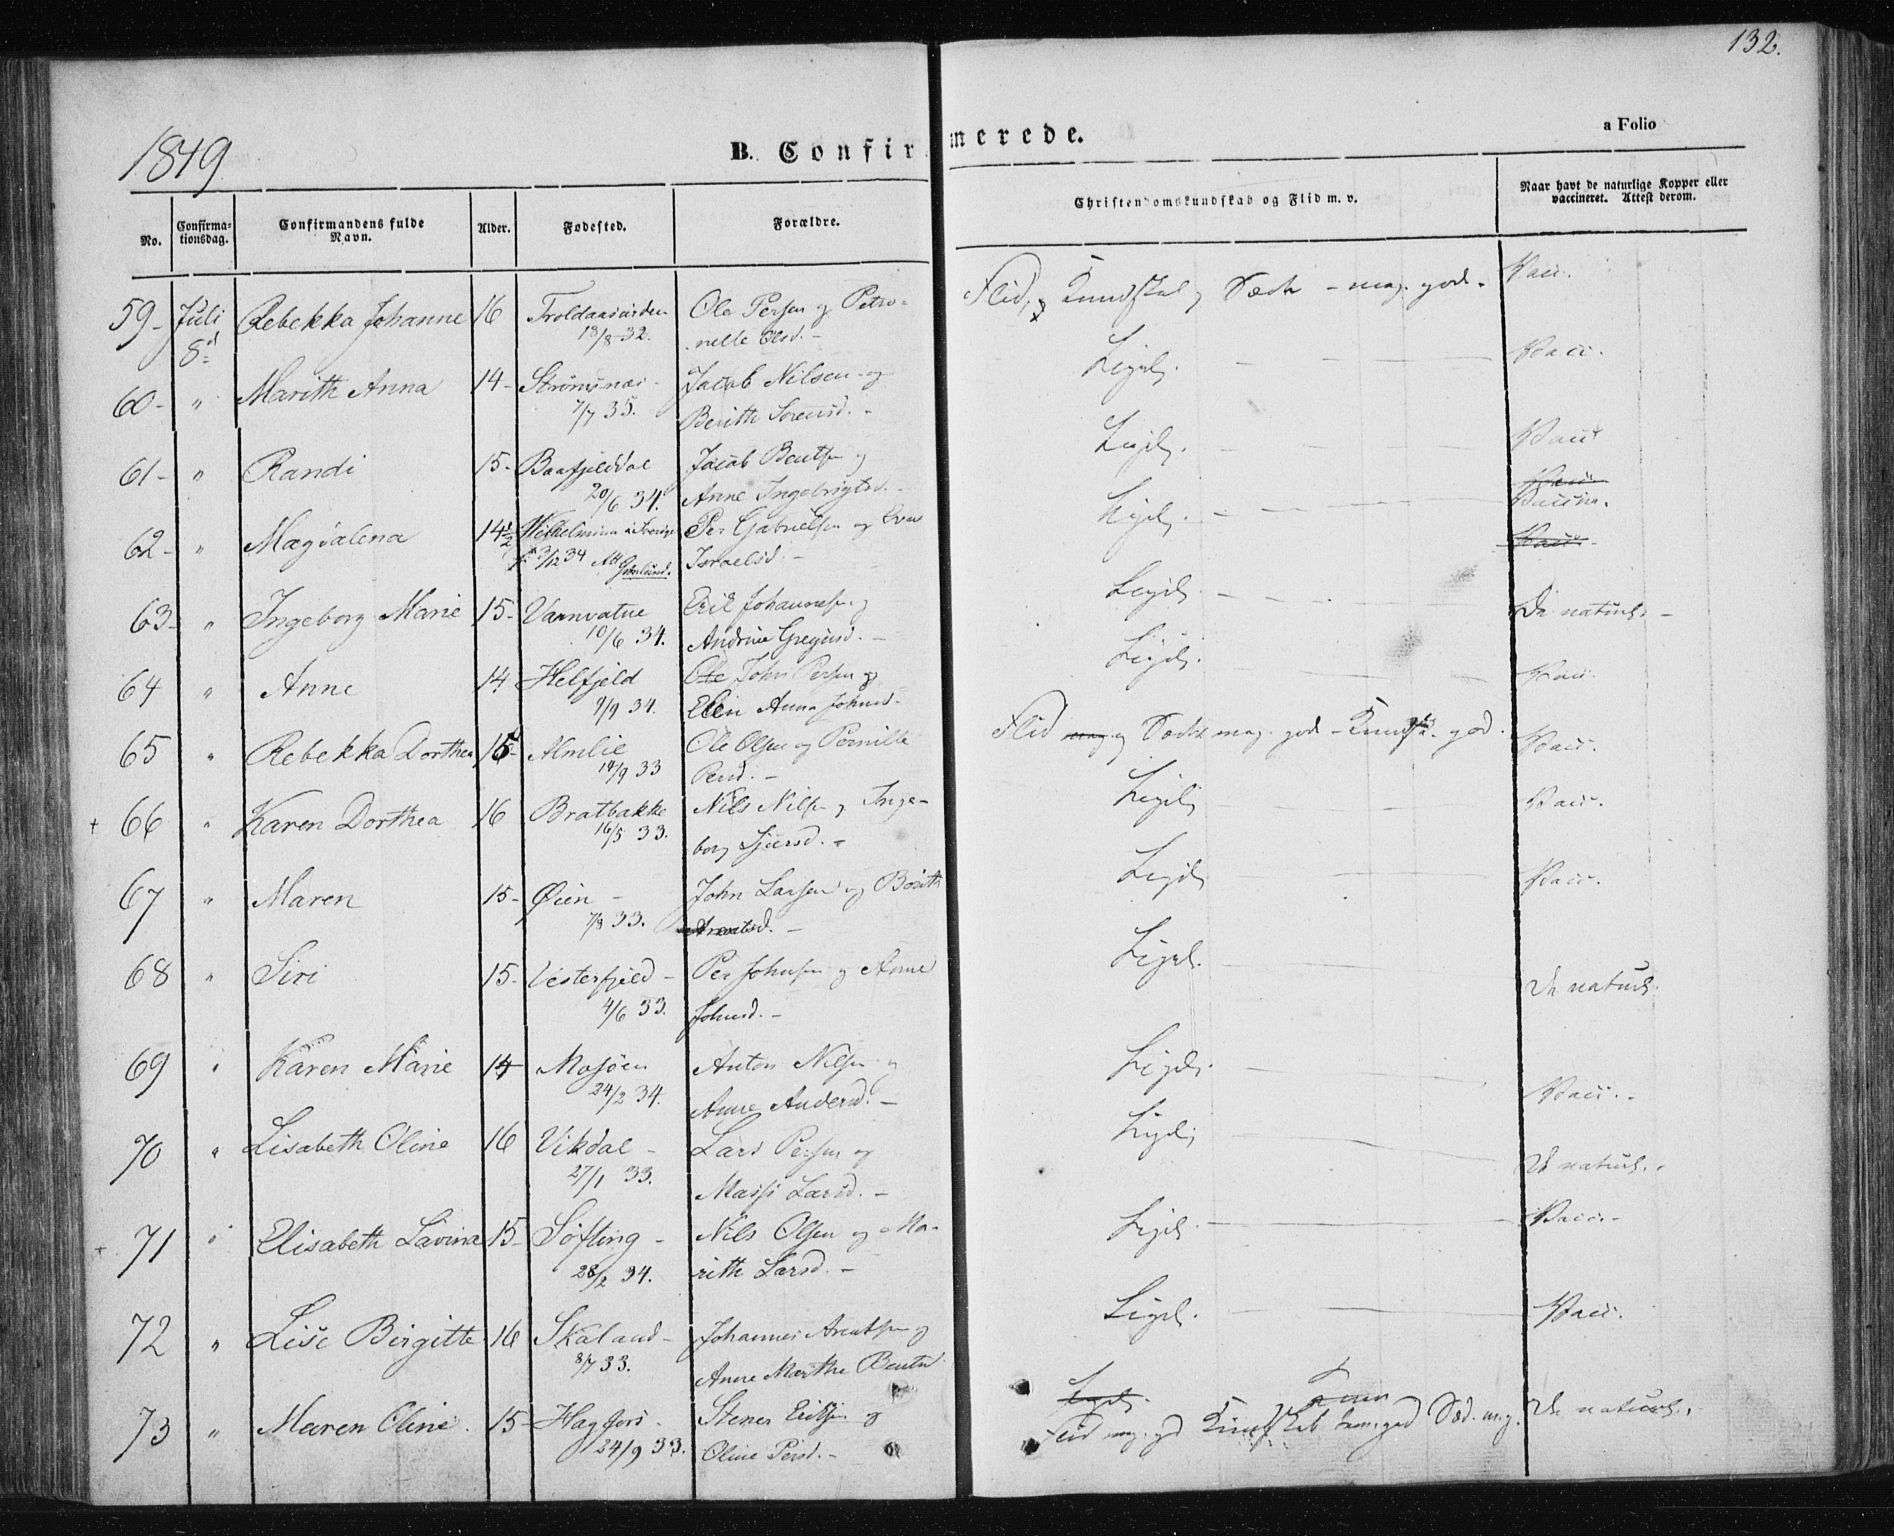 132.
1849
B. Confirmerede.
a Folio
No.
Confirma-
tionsdag.
Confirmandens fulde
Navn.
Alder.
Fødested.
Forældre.
Christendomskundskab og Flid m. v.
Naar havt de naturlige Kopper eller
vaccineret. Attest derom.
59- Juli Rebekka Johanne 16 Ole Persen og Petro- Flid, Kundskab, Sæder - meg. god. Vacc.
8d 18/8 32. nelle Olsd. -
60- " Marith Anna 14- Strømsnæs - Jacob Nilsen og Ligel. Vacc.
7/7 35. Berith Sorensd. -
61- " Randi 15- Baafjelddal Jacob Bentsen og Ligel. Vacc
20/6 34. Anne Ingebrigtsd. - Vacc.
62- " Magdalena 14½ Wilhelmina i Sverige Per Gabrielsen og Eva Ligel. Vaccin.
3/12 34 Att Grønlund. Israelsd. - Vacc.
63- " Ingeborg Marie 15- Vaanvatne Erik Johannesen og Ligel. De naturl. -
10/6 34. Andrine Gregusd. -
64 " Anne 14 Helfjeld Ole John Persen og Ligel. Vacc.
9/9 34. Elen Anna Johnsd. -
65 " Rebekka Dorthea 15 Almlie Ole Olsen og Pernille Flid meg og Sæder meg. god - Kundsk. god. Vacc.
14/9 33 Persd. -
+ 66 " Karen Dorthea 16 Bratbakke Nils Nilsen og Inge- Ligel. Vacc.
16/5 33. borg Sjursd. -
67 " Maren 15- Øien - John Larsen og Berith Ligel. Vacc.
7/8 33. Arentsd. -
68 " Siri 15- Vesterfjeld - Per Johnsen og Anne Ligel. De naturl.
4/6 33. Johnsd. -
69 " Karen Marie 14 Mosjøen Anton Nilsen og Ligel. Vacc. -
24/2 34. Anne Andersd. -
70 " Lisabeth Oline 16 Vikdal - Lars Persen og Ligel. De naturl. -
27/1 33. Massi Larsd. -
+ 71 " Elisabeth Lavina 15- Søfting - Nils Olsen og Ma- Ligel. Vacc. -
28/2 34. rith Larsd. -
72 " Lise Birgitte 16 Skaland - Johannes Arentsen og Ligel. Vacc.
8/7 33. Anne Marthe Bentsd
73 " Maren Oline. 15- Hagfors - Stener Eriksen og Ligel. De naturl. -
24/9 33. Oline Persd. - Flid meg. gd Kundskab god Sæd. m. g.